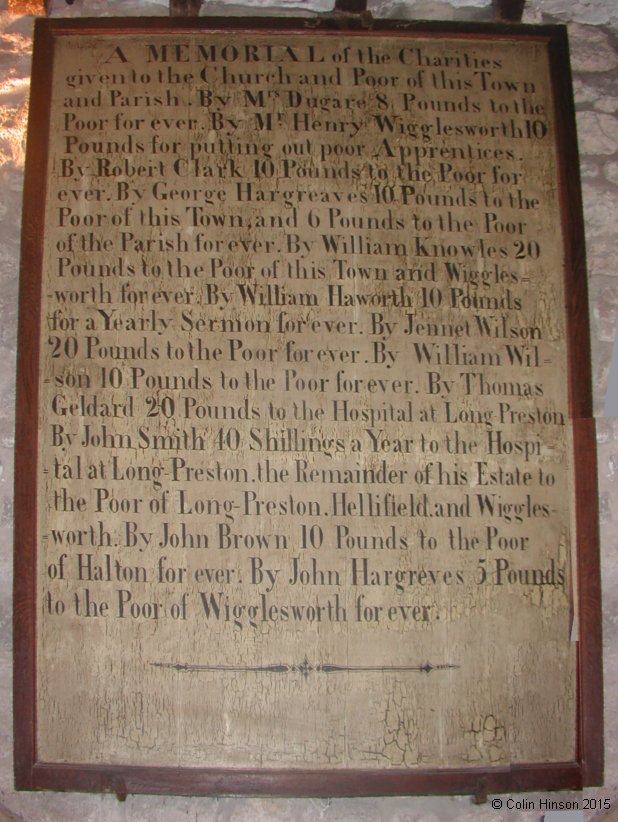 A MEMORIAL of the Charities
given to the Church and Poor of this Town
and Parish. By Mrs Dugare 8, Pounds to the
Poor for ever. By Mr Henry Wigglesworth 10
Pounds for putting out poor Apprentices.
By Robert Clark 10 Pounds to the Poor for
ever. By George Hargreaves 10 Pounds to the
Poor of this Town, and 6 Pounds to the Poor
of the Parish for ever. By William Knowles 20
Pounds to the Poor of this Town and Wiggles-
-worth for ever. By William Haworth 10 Pounds
for a Yearly Sermon for ever. By Jennet Wilson
20 Pounds to the Poor for ever. By William Wil-
-son 10 Pounds to the Poor for ever. By Thomas
Geldard 20 Pounds to the Hospital at Long-Preston
By John Smith 40 Shillings a Year to the Hospi-
-tal at Long-Preston, the Remainder of his Estate to
the Poor of Long-Preston, Hellifield, and Wiggles-
-worth. By John Brown 10 Pounds to the Poor
of Halton for ever. By John Hargreves 5 Pounds
to the Poor of Wigglesworth for ever.
© Colin Hinson 2015